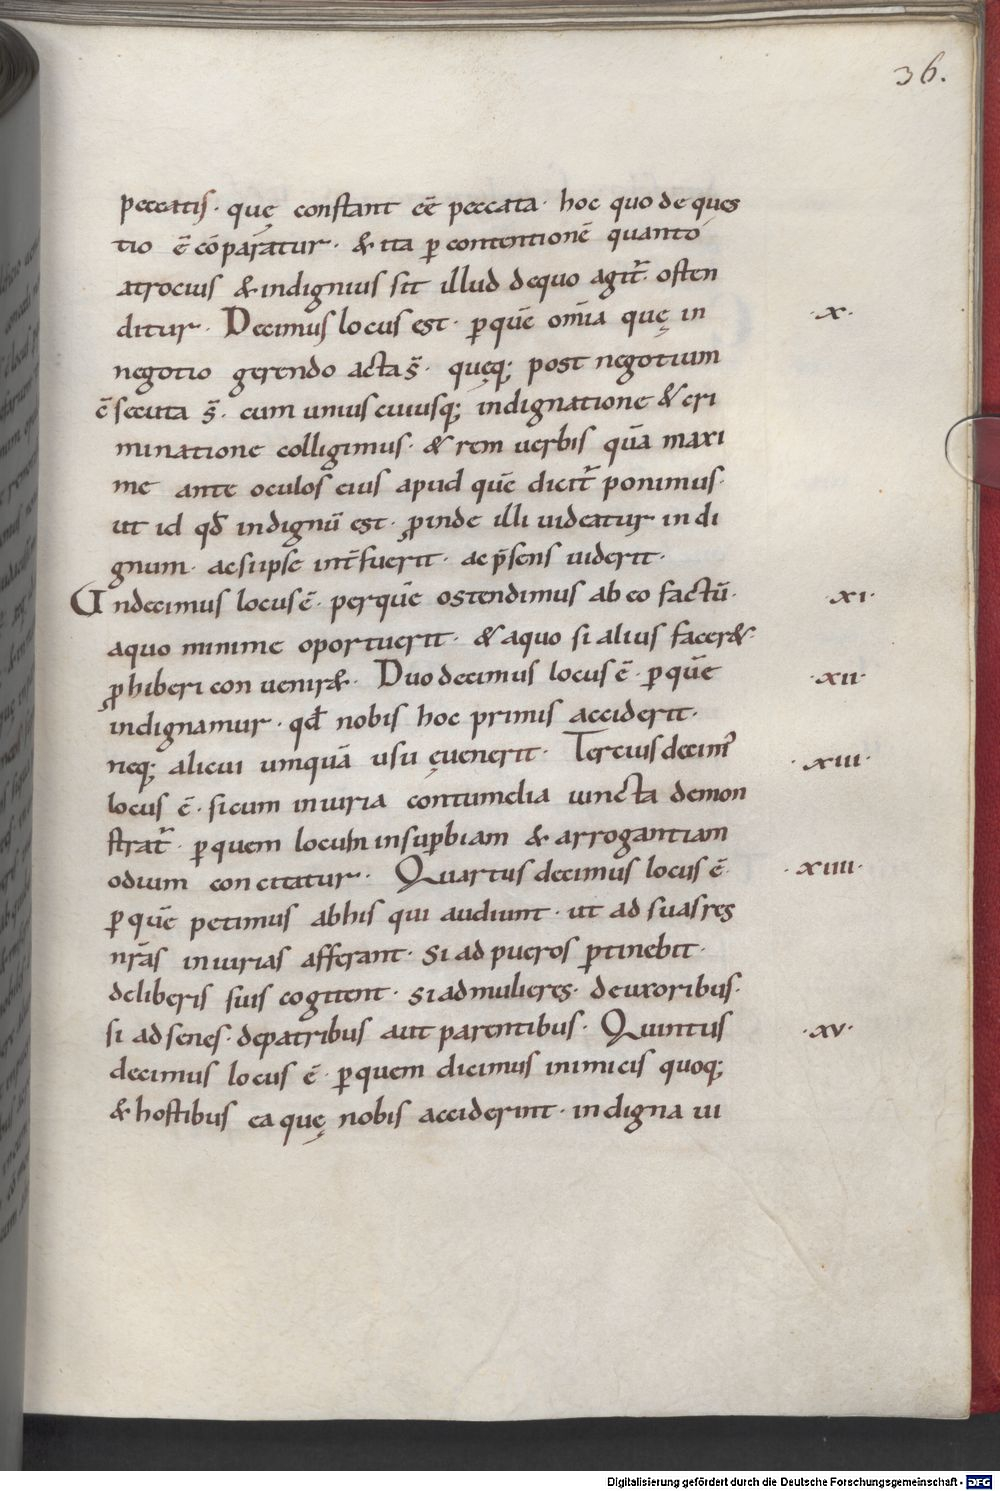 36.
peccatis · quę constant eē peccata · hoc quo de ques
tio ē cōparatur · & ita ꝑ contentionē quanto
atrocius & indignius sit illud dequo agit̄ · osten
ditur · Decimus locus est · ꝑ quē om̄ia quę in
·x·
negotio gerendo acta s̄ · quęq; post negotium
ē secuta s̄ · cum unius cuiusq; indignatione & cri
minatione colligimus · & rem uerbis quā maxi
me ante oculos eius apud quē dicit̄ ponimus ·
ut id qđ indignū est · ꝓinde illi uideatur indi
gnum · ac siipse int̄fuerit · ac p̄sens uiderit ·
Undecimus locus ē · perquē ostendimus ab eo factū ·
·xi·
aquo minime oportuerit · & aquo si alius facer& ·
ꝓhiberi conuenir& · Duodecimus locus ē · ꝑ quē
·xii·
indignamur · qđ nobis hoc primis acciderit ·
neq; alicui umquā usu ęuenerit · Tercius decim᾽
·xiii·
locus ē · si cum iniuria contumelia iuncta demon
strat̄ · ꝑ quem locum insuꝑbiam & arrogantiam
odium concitatur · Quartus decimus locus ē ·
·xiiii·
ꝑ quē petimus abhis qui audiunt · ut ad suas res
nr̄as iniurias afferant · si ad pueros ꝑtinebit ·
deliberis suis cogitent · si admulieres · deuxoribus ·
si ad senes · depatribus aut parentibus · Quintus
·xv·
decimus locus ē · ꝑ quem dicimus inimicis quoq;
& hostibus ea quę nobis acciderint · indigna ui
Digitalisierung gefördert durch die Deutsche Forschungsgemeinschaft - DFG